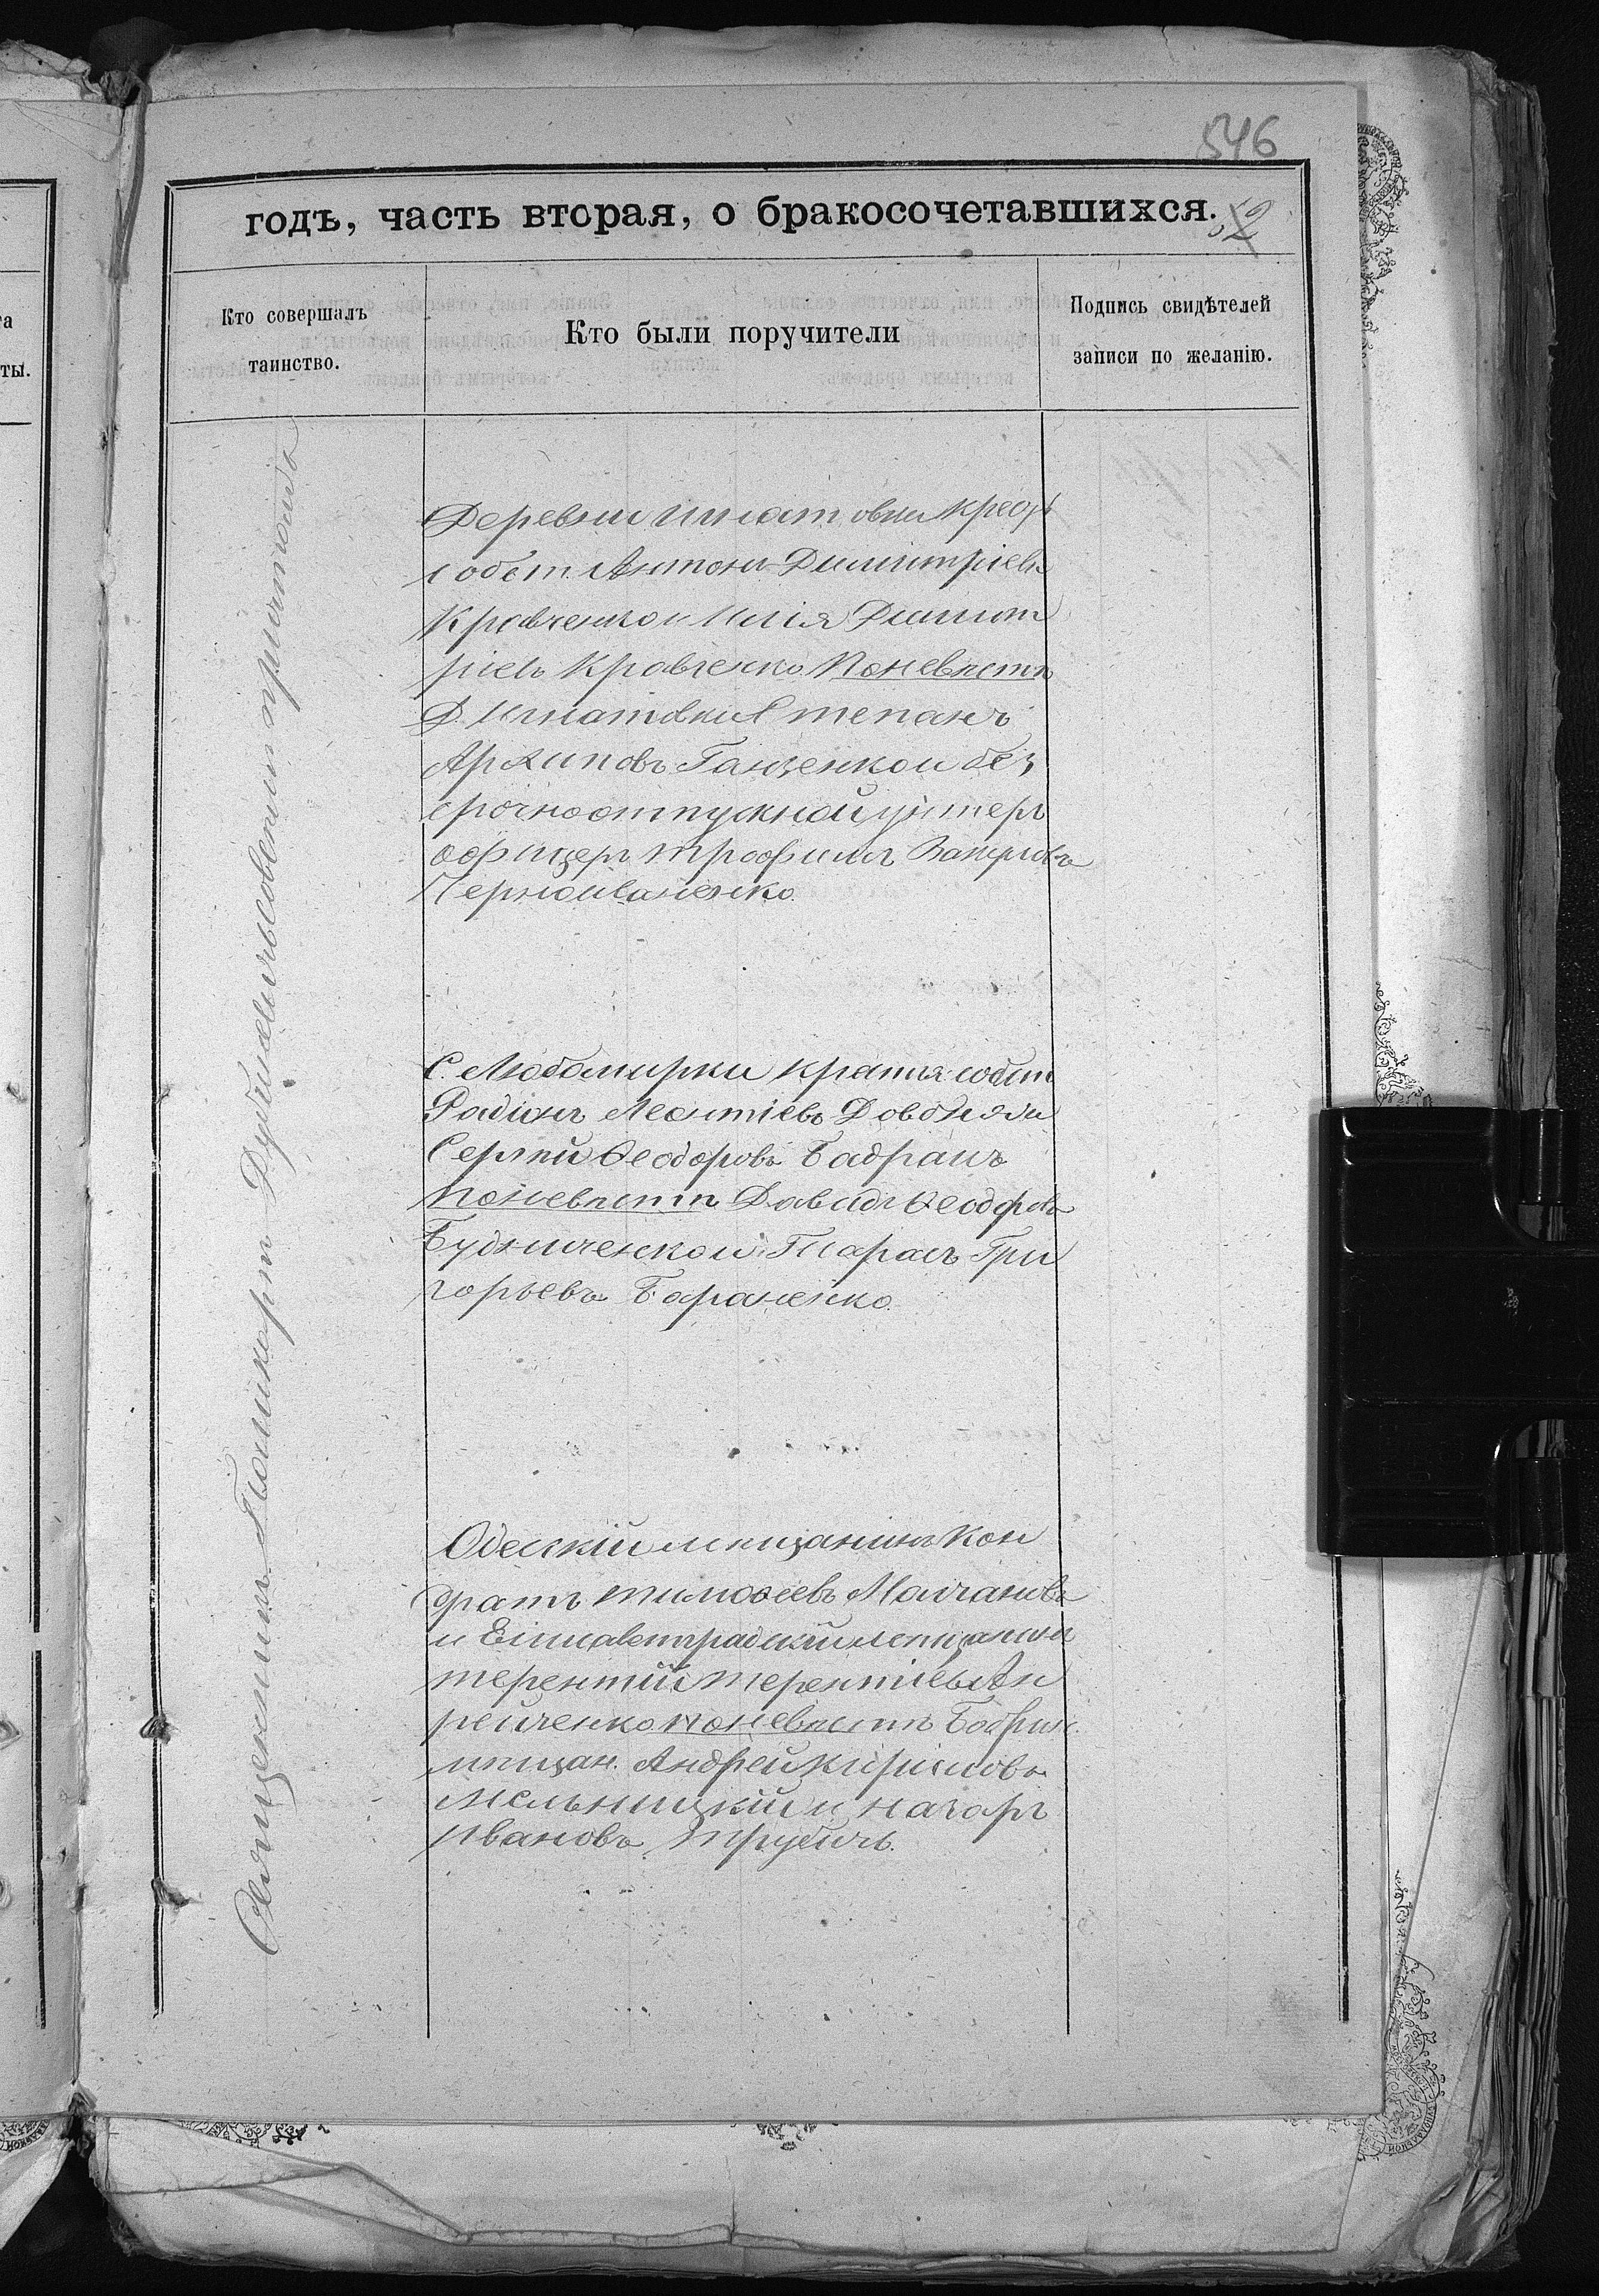 546
годъ, часть вторая, о бракосочетавшихся.
Кто совершалъ
таинство.
Кто были поручители
Подпись свидѣтелей
записи по желанію.
Священникъ Поликарпъ съ
Деревни Игнатовки крест
собст. Антонъ Димитріевъ
Кравченко и Илія Димит
ріевъ Кравченко. По невѣстѣ
Д. Игнатовки Степанъ
Архиповъ Ганзенко и без
срочноотпускной унтеръ
офицеръ Трофимъ
Черноиваненко.
С. Любомирки собст
Радіонъ Леонтіевъ Довбня и
Сергій Ѳеодоровъ Бадранъ
по невѣстѣ Давидъ Ѳеодоровъ
Будниченко и Тарасъ Гри
горьевъ Бараненко.
Одескій мѣщанинъ Кон
дратъ Тимоѳеевъ Молчановъ
и Елисаветградскій мѣщанинъ
Терентій Терентіевъ Ан
рейченко по невѣстѣ Бобрин.
мѣщан. Андрей Кириловъ
Мельницкій и
Ивановъ